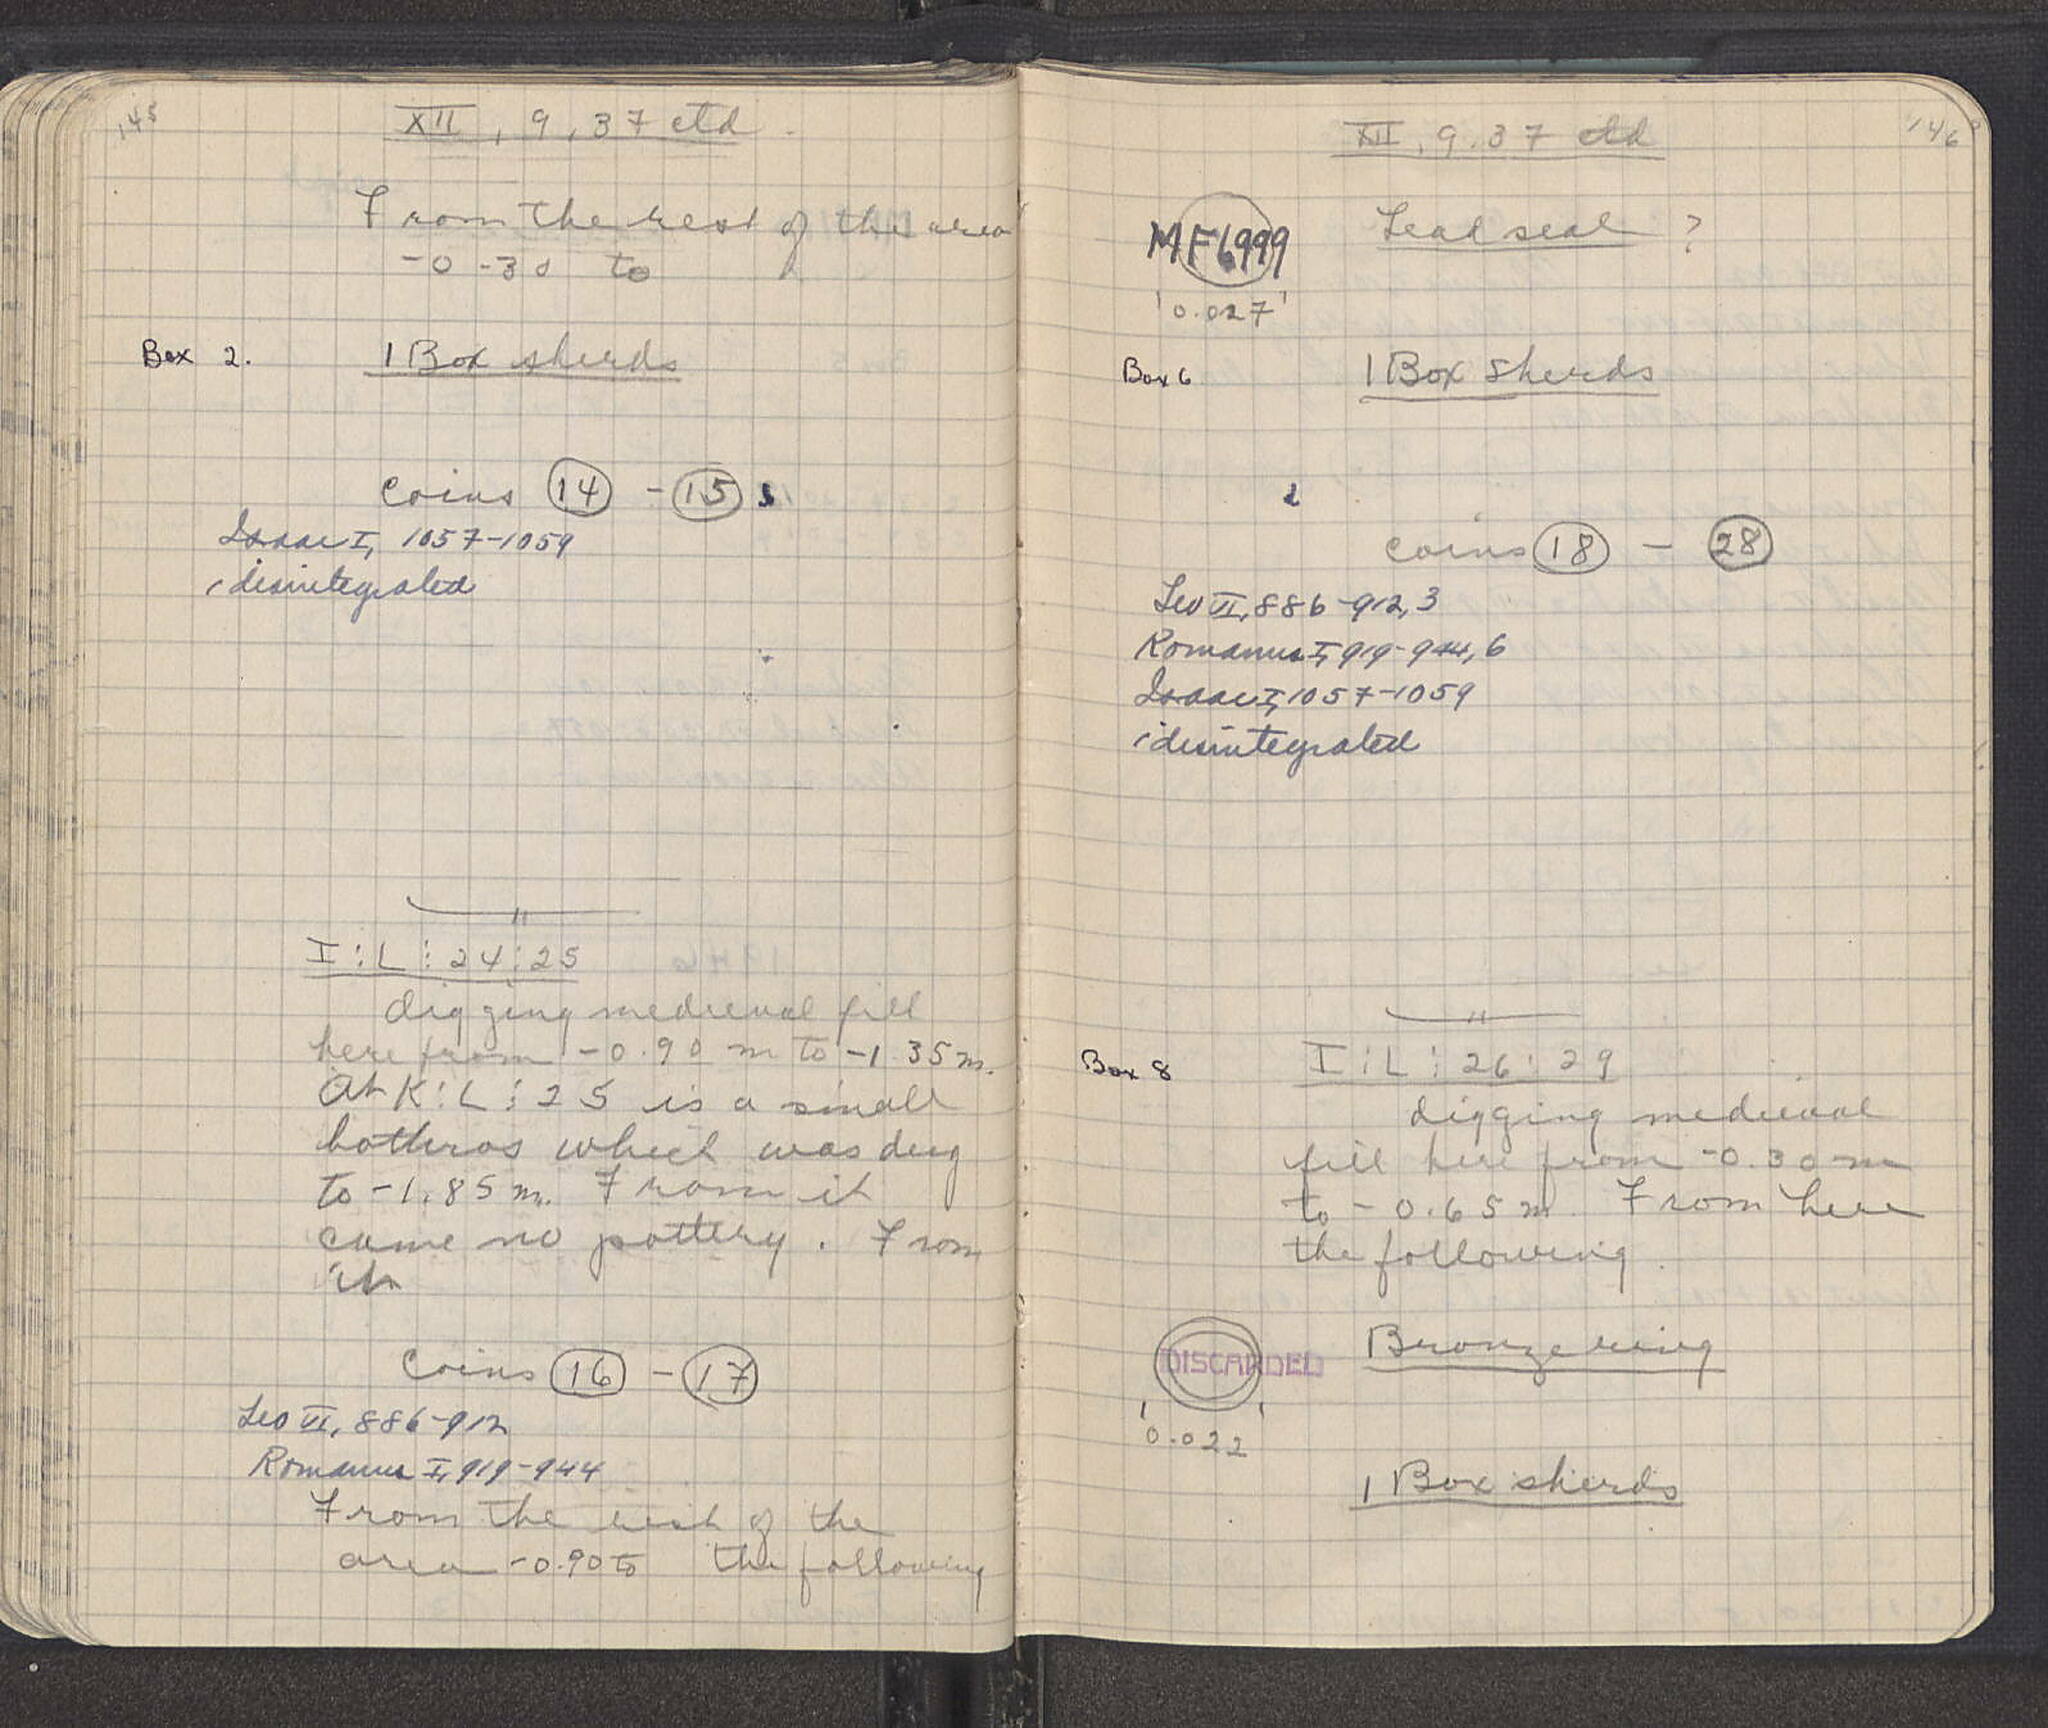 145
XII, 9, 37 ctd.
From the rest of the area
-0.30 to
Box 2. 1 Box sherds
coins 14 - 15
Isaac I, 1057-1059
1 disintegrated
I:L:24:25
digging medieval fill
here from -0.90 m to -1.35 m.
At K:L:25 is a small
bothros which was dug
to -1.85 m. From it
came no pottery. From
it
Coins 16 - 17
Leo VI, 886-912
Romanus I, 919-944
From the rest of the
area -0.90 to the following
146
XII, 9.37 ctd
MF6999 Lead seal ?
0.027
Box 6 1 Box Sherds
coins 18 - 28
Leo VI, 886-912, 3
Romanus I, 919-944, 6
Isaac I, 1057-1059
1 disintegrated
Box 8 I:L:26:29
digging medieval
fill here from -0.30 m
to -0.65 m From here
the following
DISCARDED Bronze ring
0.022
1 Box sherds